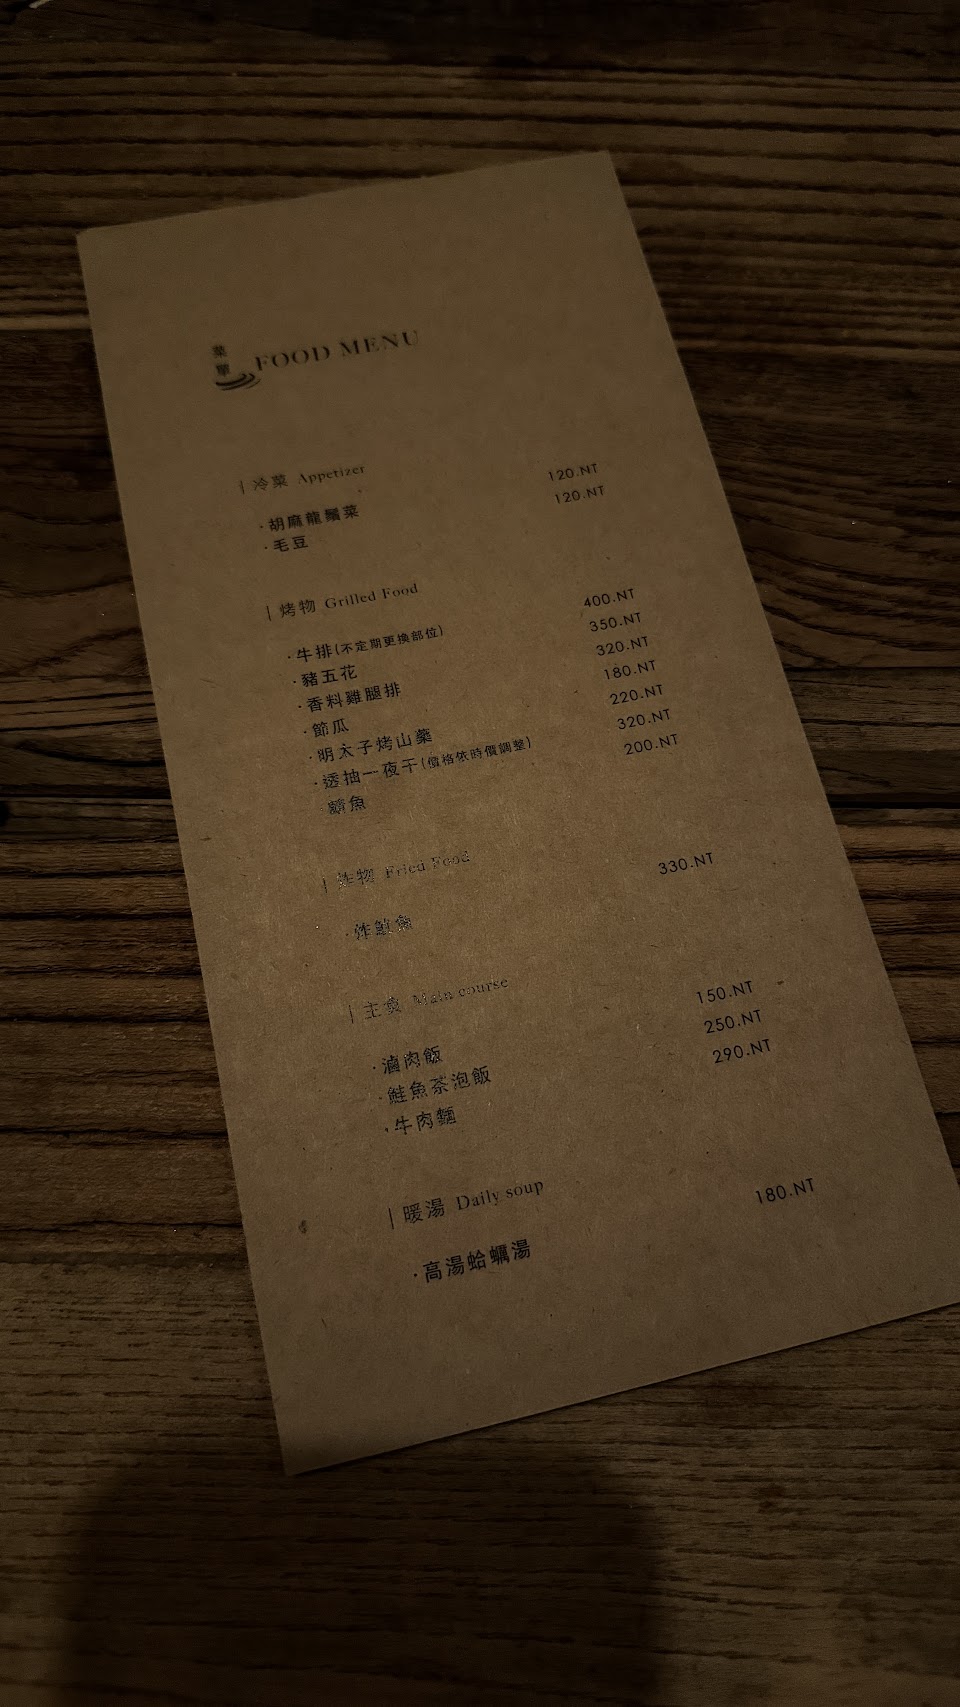 菜單 FOOD MENU
| 冷菜 Appetizer
·胡麻龍鬚菜 120.NT
·毛豆 120.NT
| 烤物 Grilled Food
·牛排(不定期更換部位) 400.NT
·豬五花 350.NT
·香料雞腿排 320.NT
·節瓜 180.NT
·明太子烤山藥 220.NT
·透抽一夜干(價格依時價調整) 320.NT
魚 200.NT
| 炸物 Fried Food
·炸魚 330.NT
| 主食 Main course
·滷肉飯 150.NT
·鮭魚茶泡飯 250.NT
·牛肉麵 290.NT
| 暖湯 Daily soup
·高湯蛤蠣湯 180.NT